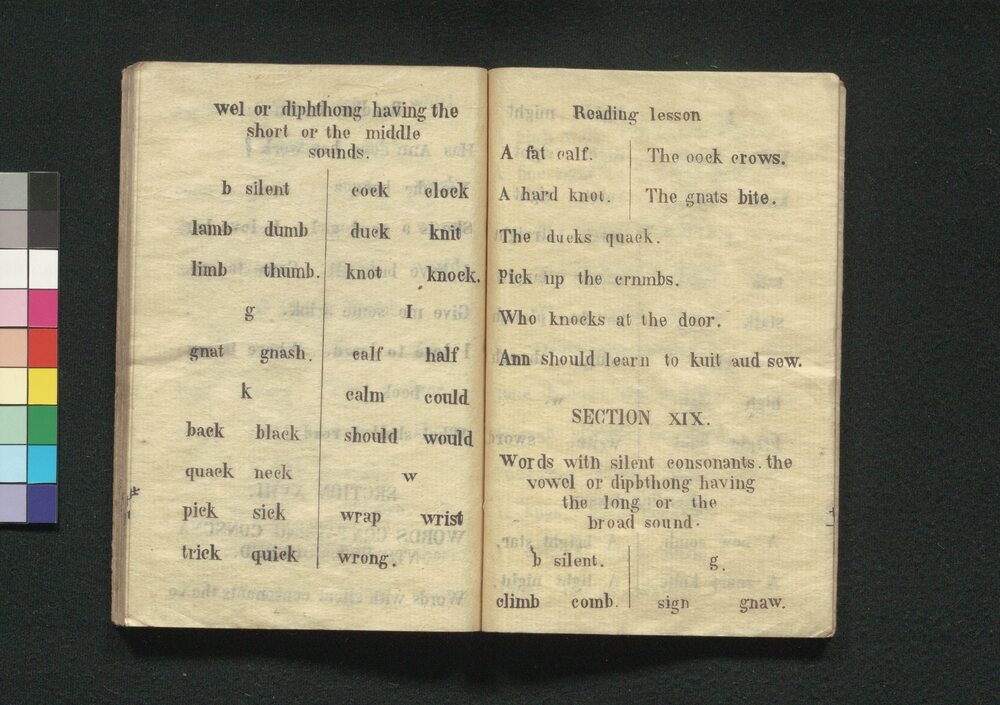 wel or diphthong having the
short or the middle
sounds.
b silent
lamb dumb
limb thumb.
g
gnat gnash.
k
back black
quack neck
pick sick
trick quick
cock clock
duck knit
knot knock.
I
calf half
calm could
should would
w
wrap wrist
wrong.
Reading lesson
A fat calf. The cock crows.
A hard knot. The gnats bite.
The ducks quack.
Pick up the crnmbs.
Who knocks at the door.
Ann should learn to kuit aud sew.
SECTION XIX.
Words with silent consonants. the
vowel or dipbthong having
the long or the
broad sound.
b silent. g.
climb comb. sign gnaw.